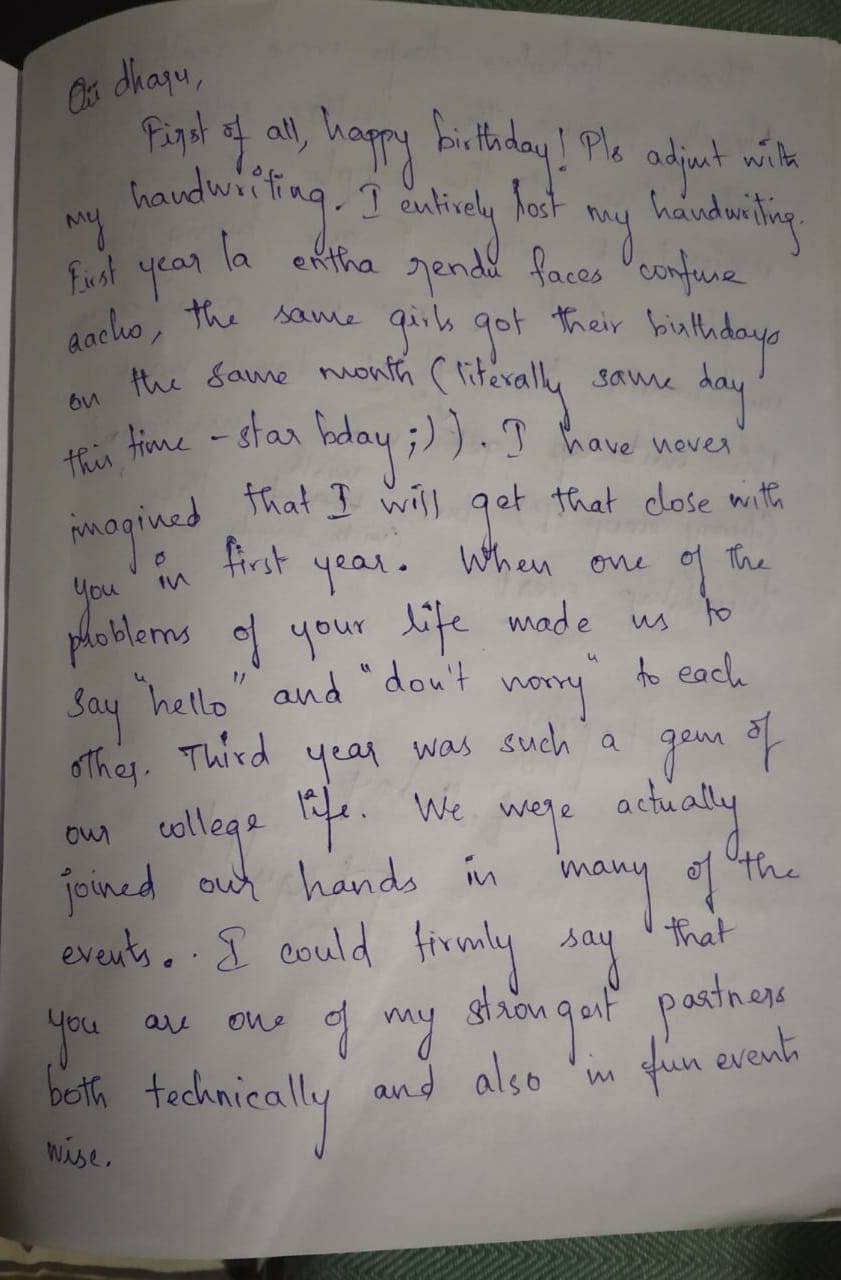 Oii dhaxu,
First of all, happy birthday! Pls adjust with
my handwriting. I entirely lost my handwriting.
First year la entha rendu faces confuse
aacho, the same girls got their birthdays
on the same month (literally same day
this time - star bday ;)). I have never
imagined that I will get that close with
you in first year. When one of the
problems of your life made us to
say "hello" and "don't worry" to each
other. Third year was such a gem of
our college life. We were actually
joined our hands in many of the
events.. I could firmly say that
you are one of my strongest partners
both technically and also in fun events
wise.